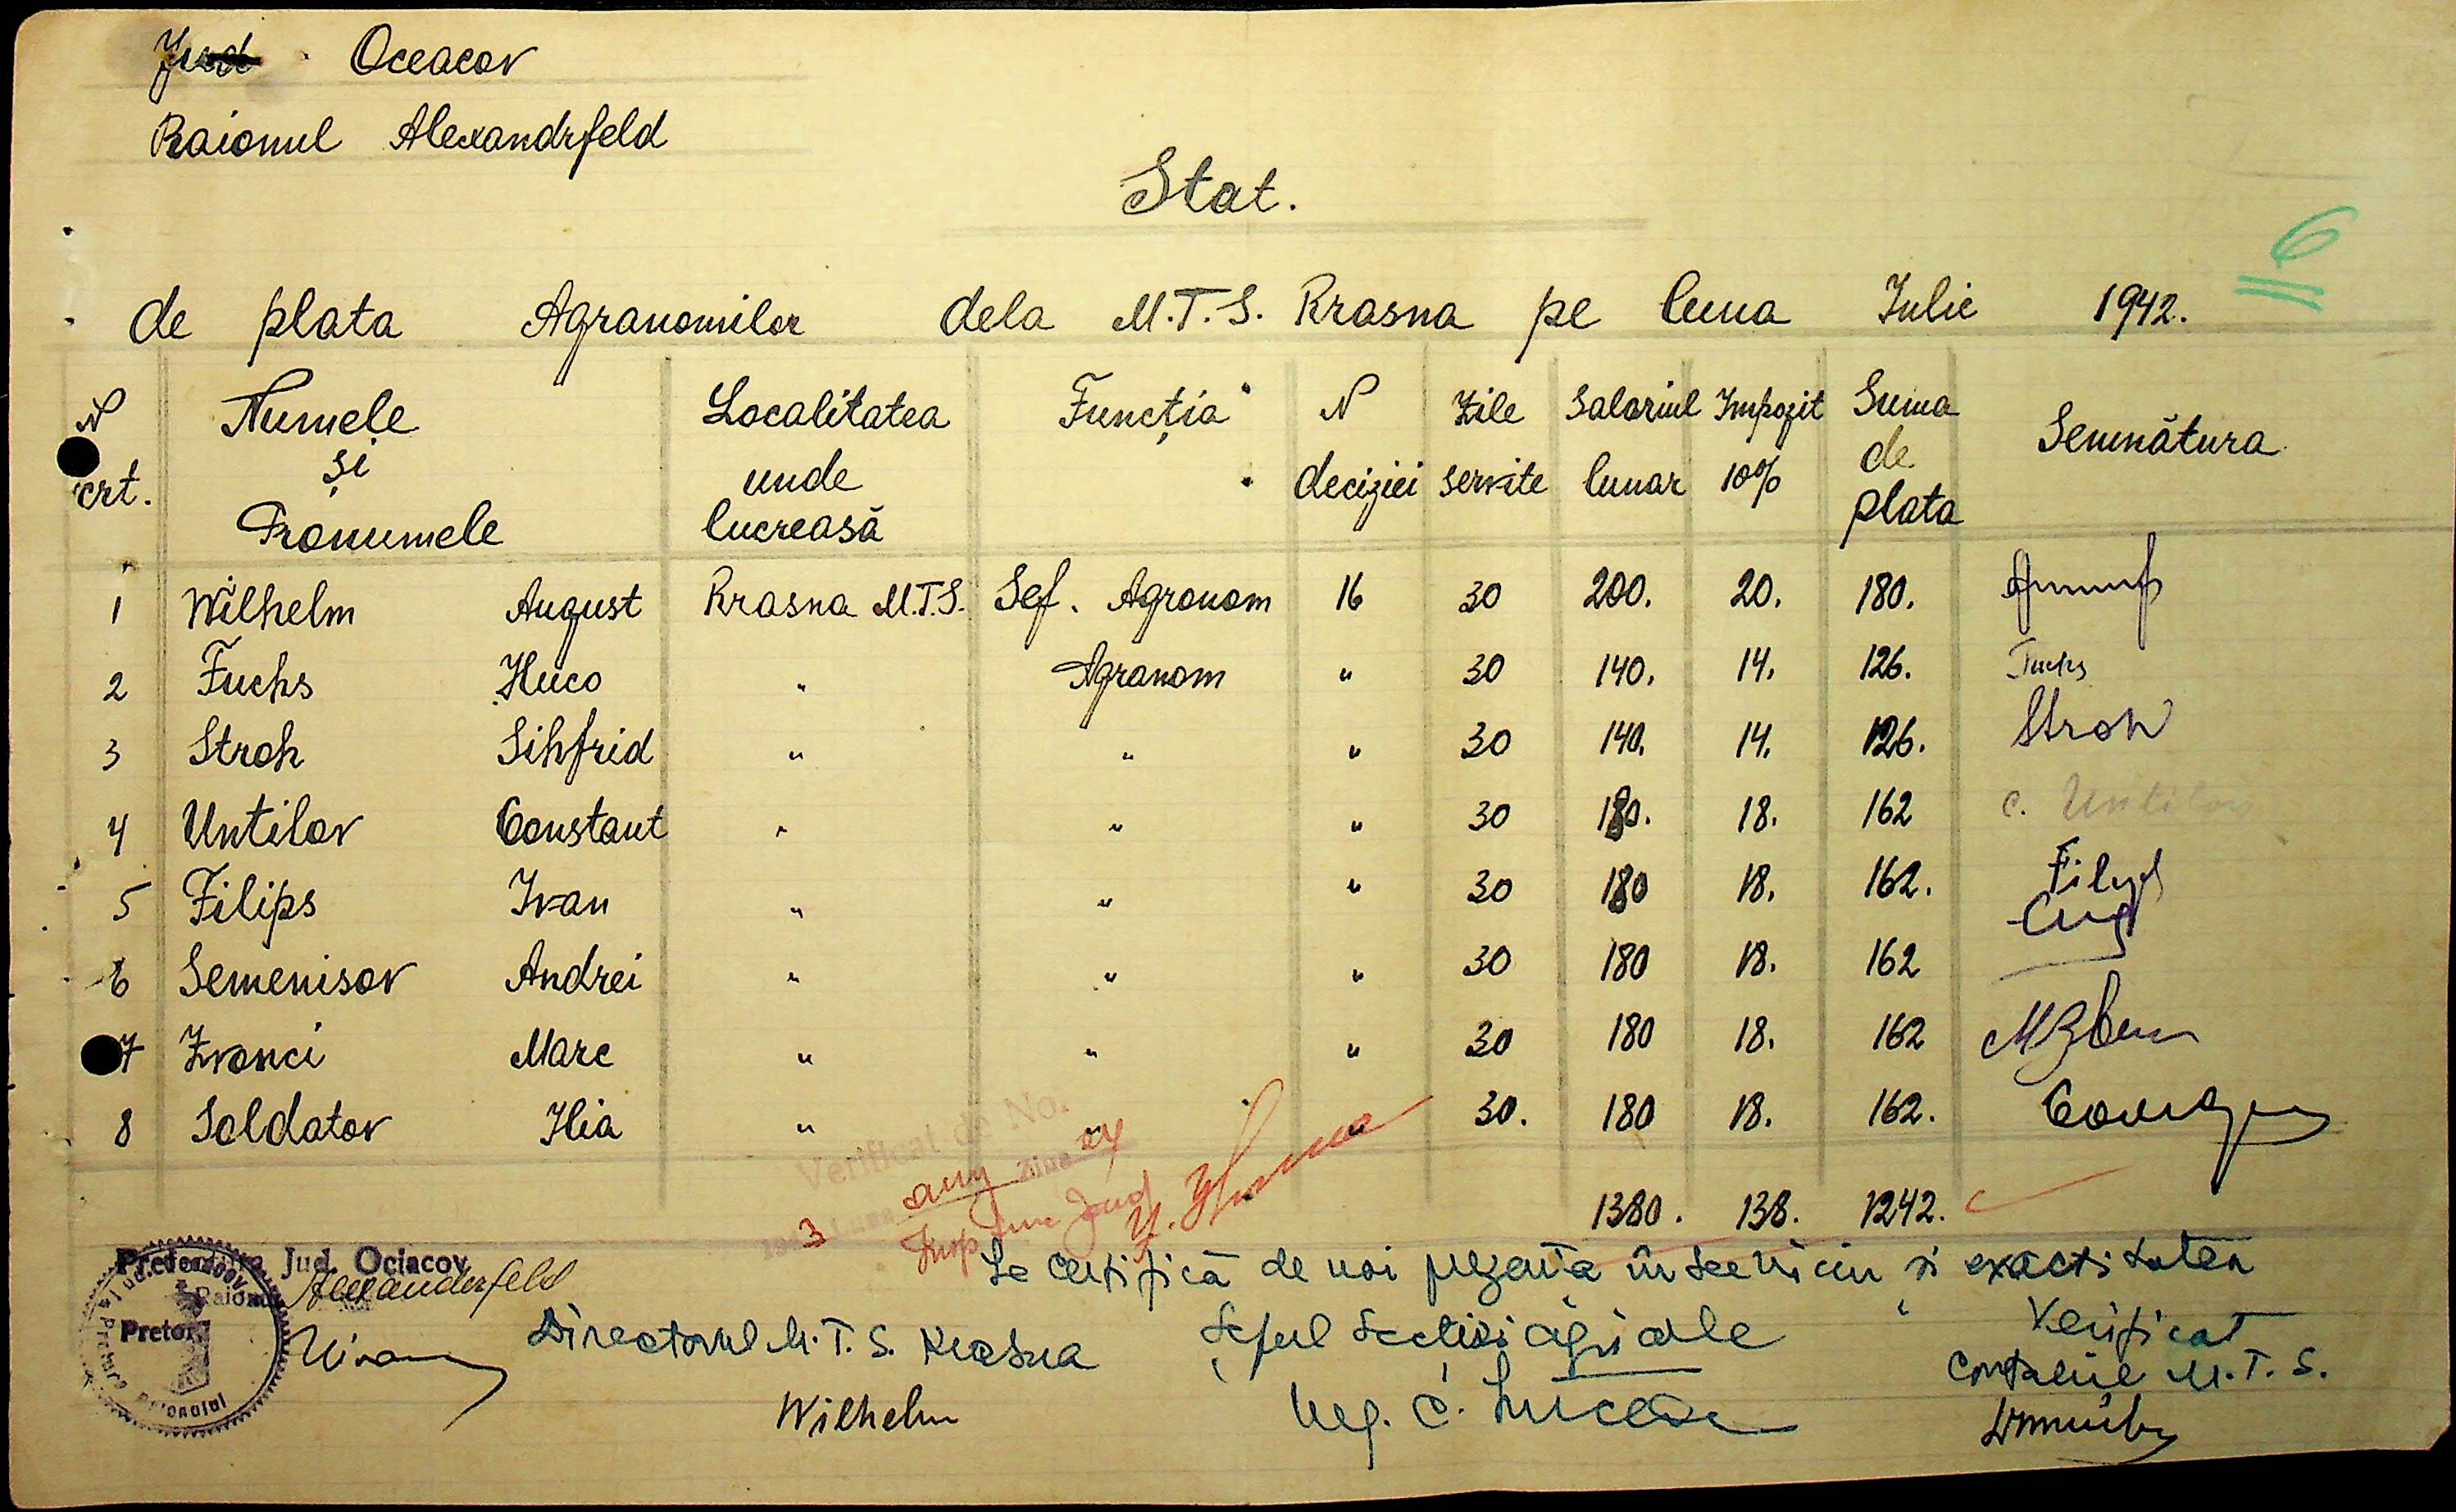 Jud. Oceacov
Raionul Alexandrfeld
Stat.
6
de plata Agranomilor dela M.T.S. Krasna pe luna Iulie 1942.
N crt. Numele și Pronumele Localitatea unde lucreasă Funcția N deciziei Zile servite Salariul lunar Impozit 10% Suma de plata Semnătura
1 Wilhelm August Krasna M.T.S. Sef. Agronom 16 30 200. 20. 180.
2 Fuchs Huco " Agranom " 30 140. 14. 126. Fuchs
3 Stroh Sihfrid " " " 30 140. 14. 126. Stroh
4 Untilov Constant " " " 30 180. 18. 162 C. Untilov
5 Filips Ivan " " " 30 180 18. 162. Filips
6 Semenisov Andrei " " " 30 180 18. 162
7 Zvonci Marc " " " 30 180 18. 162
8 Soldatov Ilia " " " 30. 180 18. 162.
Verificat de No.
1380. 138. 1242.
Se certifică de noi prezența în serviciu și exactitatea
Prefectura Jud. Ociacov
Raionul Alexanderfeld
Pretor
Directorul M.T.S. Krasna
Wilhelm
Șeful Secției agricole
Ing. C.
Verificat
Contabil M.T.S.